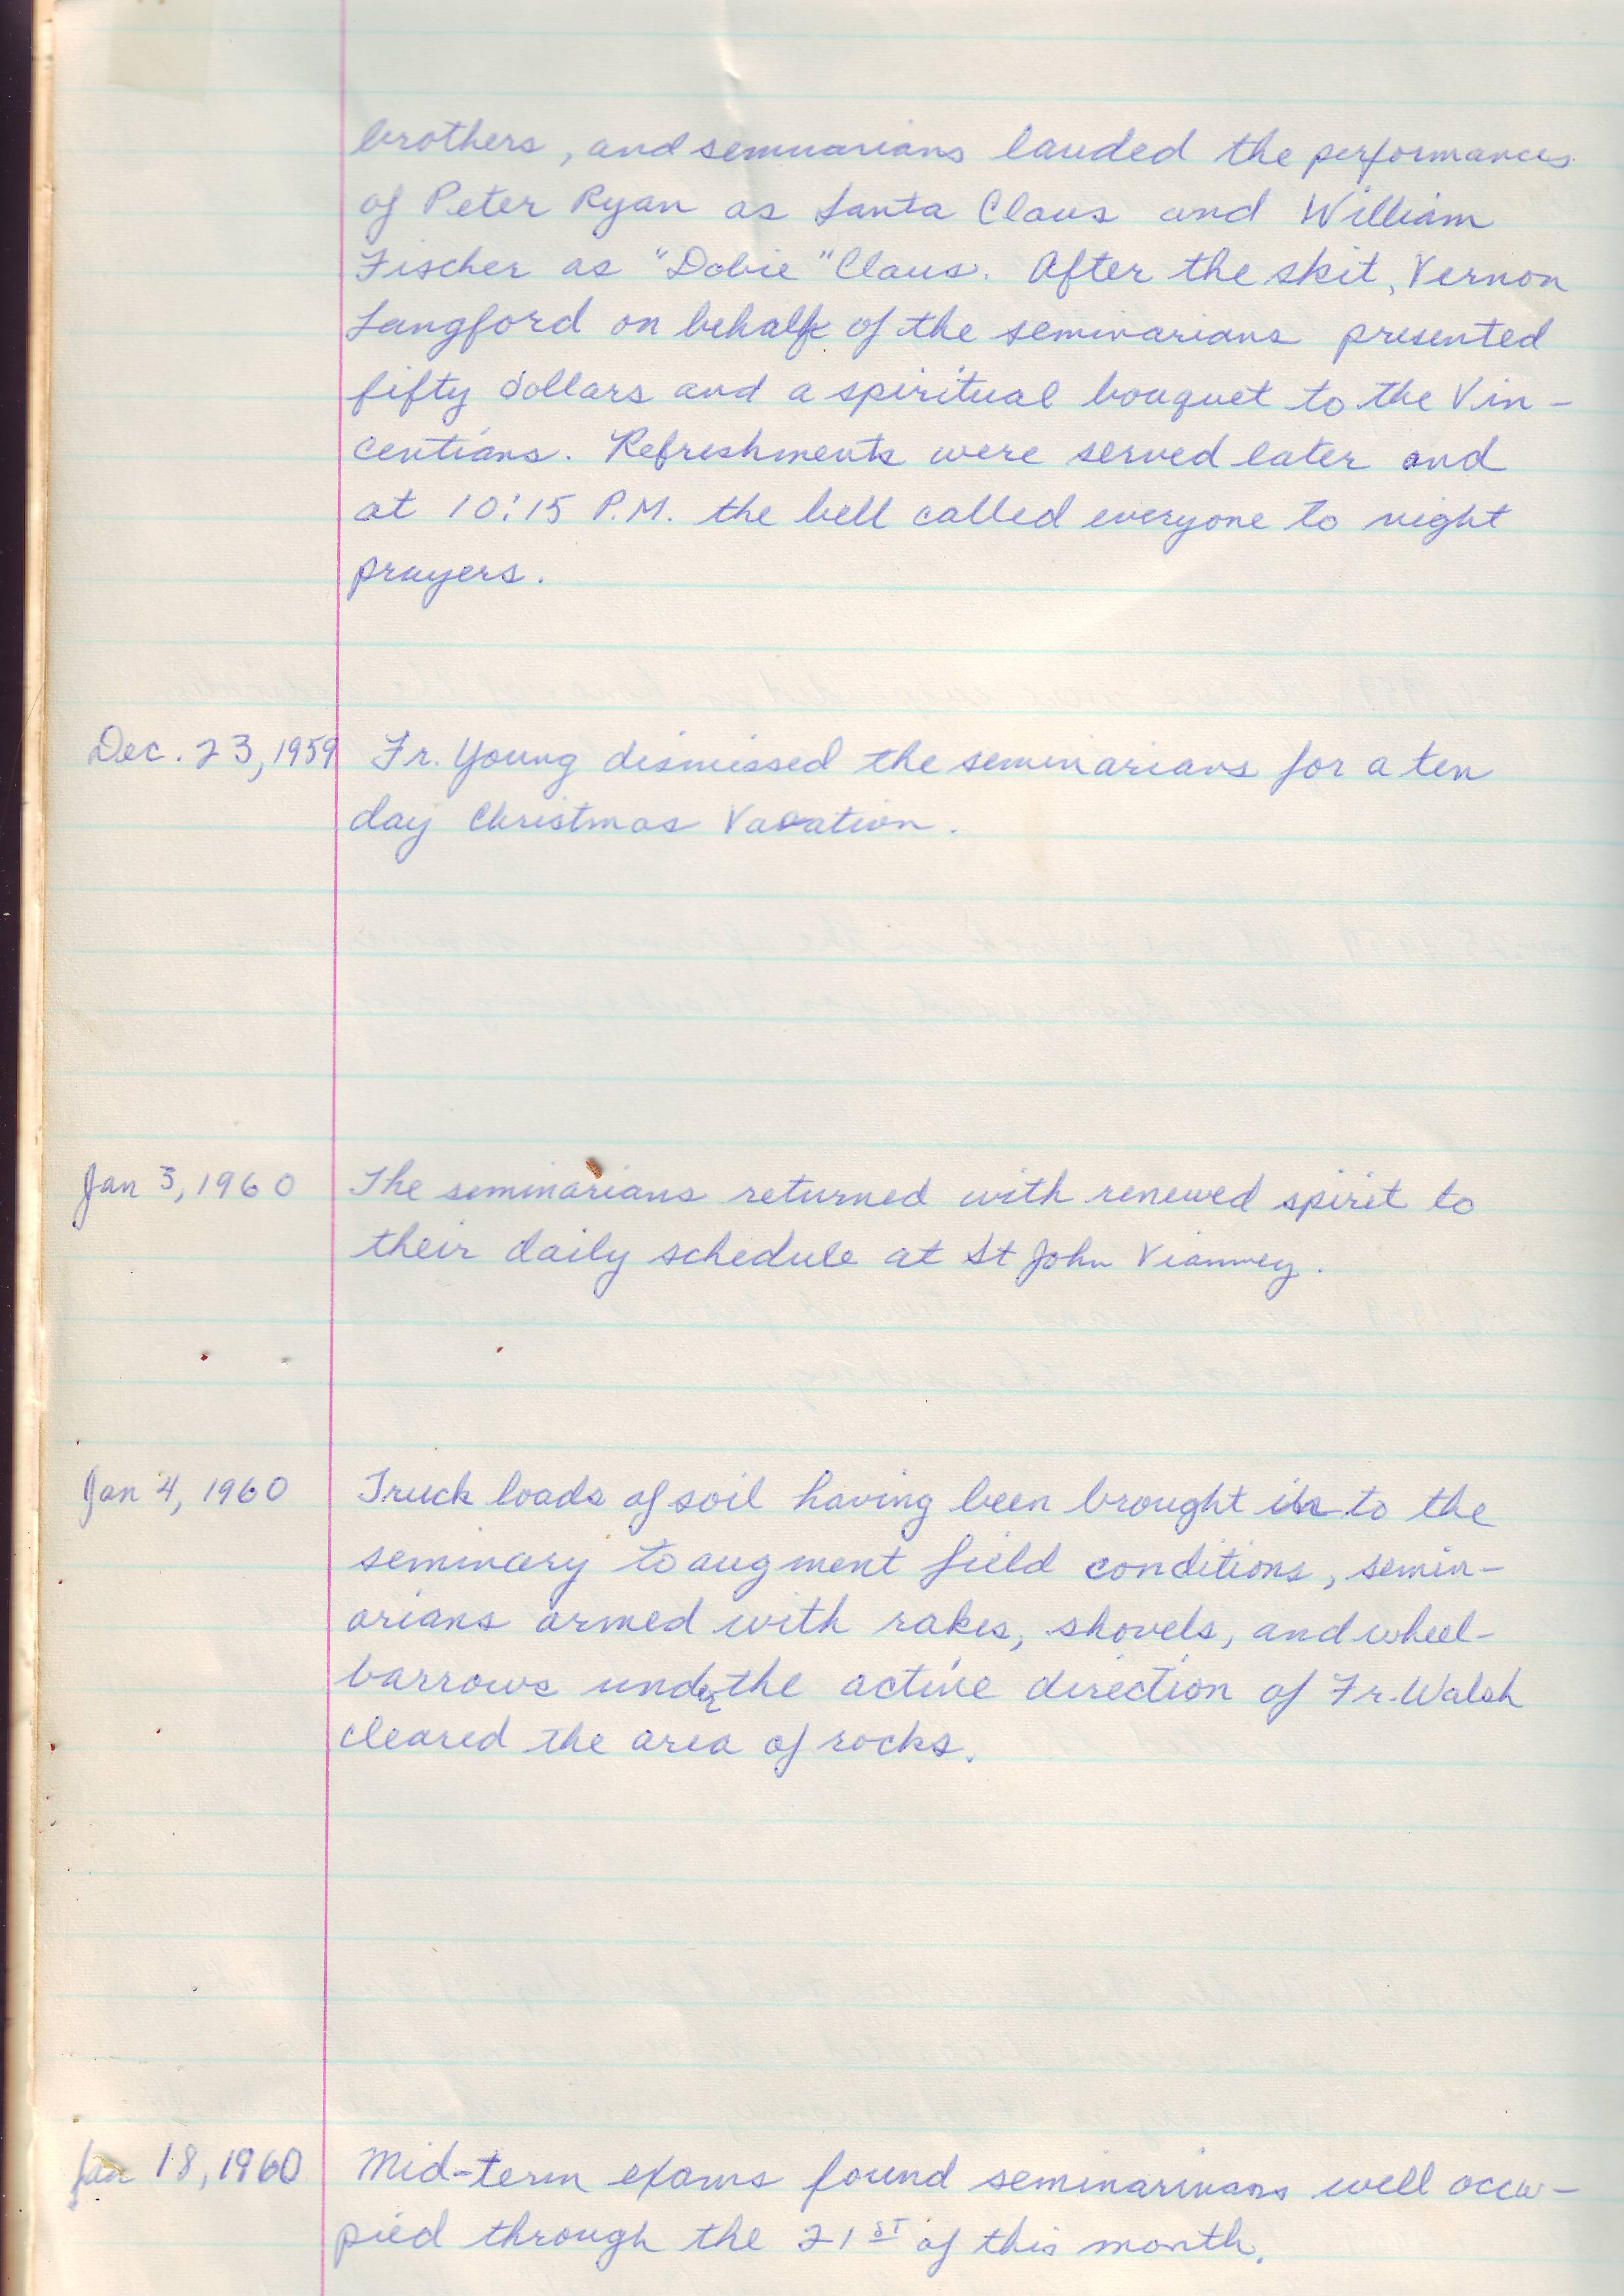 brothers, and seminarians lauded the performances
of Peter Ryan as Santa Claus and William
Fischer as "Dobie" Claus. After the skit, Vernon
Langford on behalf of the seminarians presented
fifty dollars and a spiritual bouquet to the Vin-
centians. Refreshments were served later and
at 10:15 P.M. the bell called everyone to night
prayers.
Dec. 23, 1959 Fr. Young dismissed the seminarians for a ten
day Christmas Vacation.
Jan 3, 1960 The seminarians returned with renewed spirit to
their daily schedule at St John Vianney.
Jan 4, 1960 Truck loads of soil having been brought in to the
seminary to augment field conditions, semin-
arians armed with rakes, shovels, and wheel-
barrows under the active direction of Fr. Walsh
cleared the area of rocks.
Jan 18, 1960 Mid-term exams found seminarians well occu-
pied through the 21ST of this month.